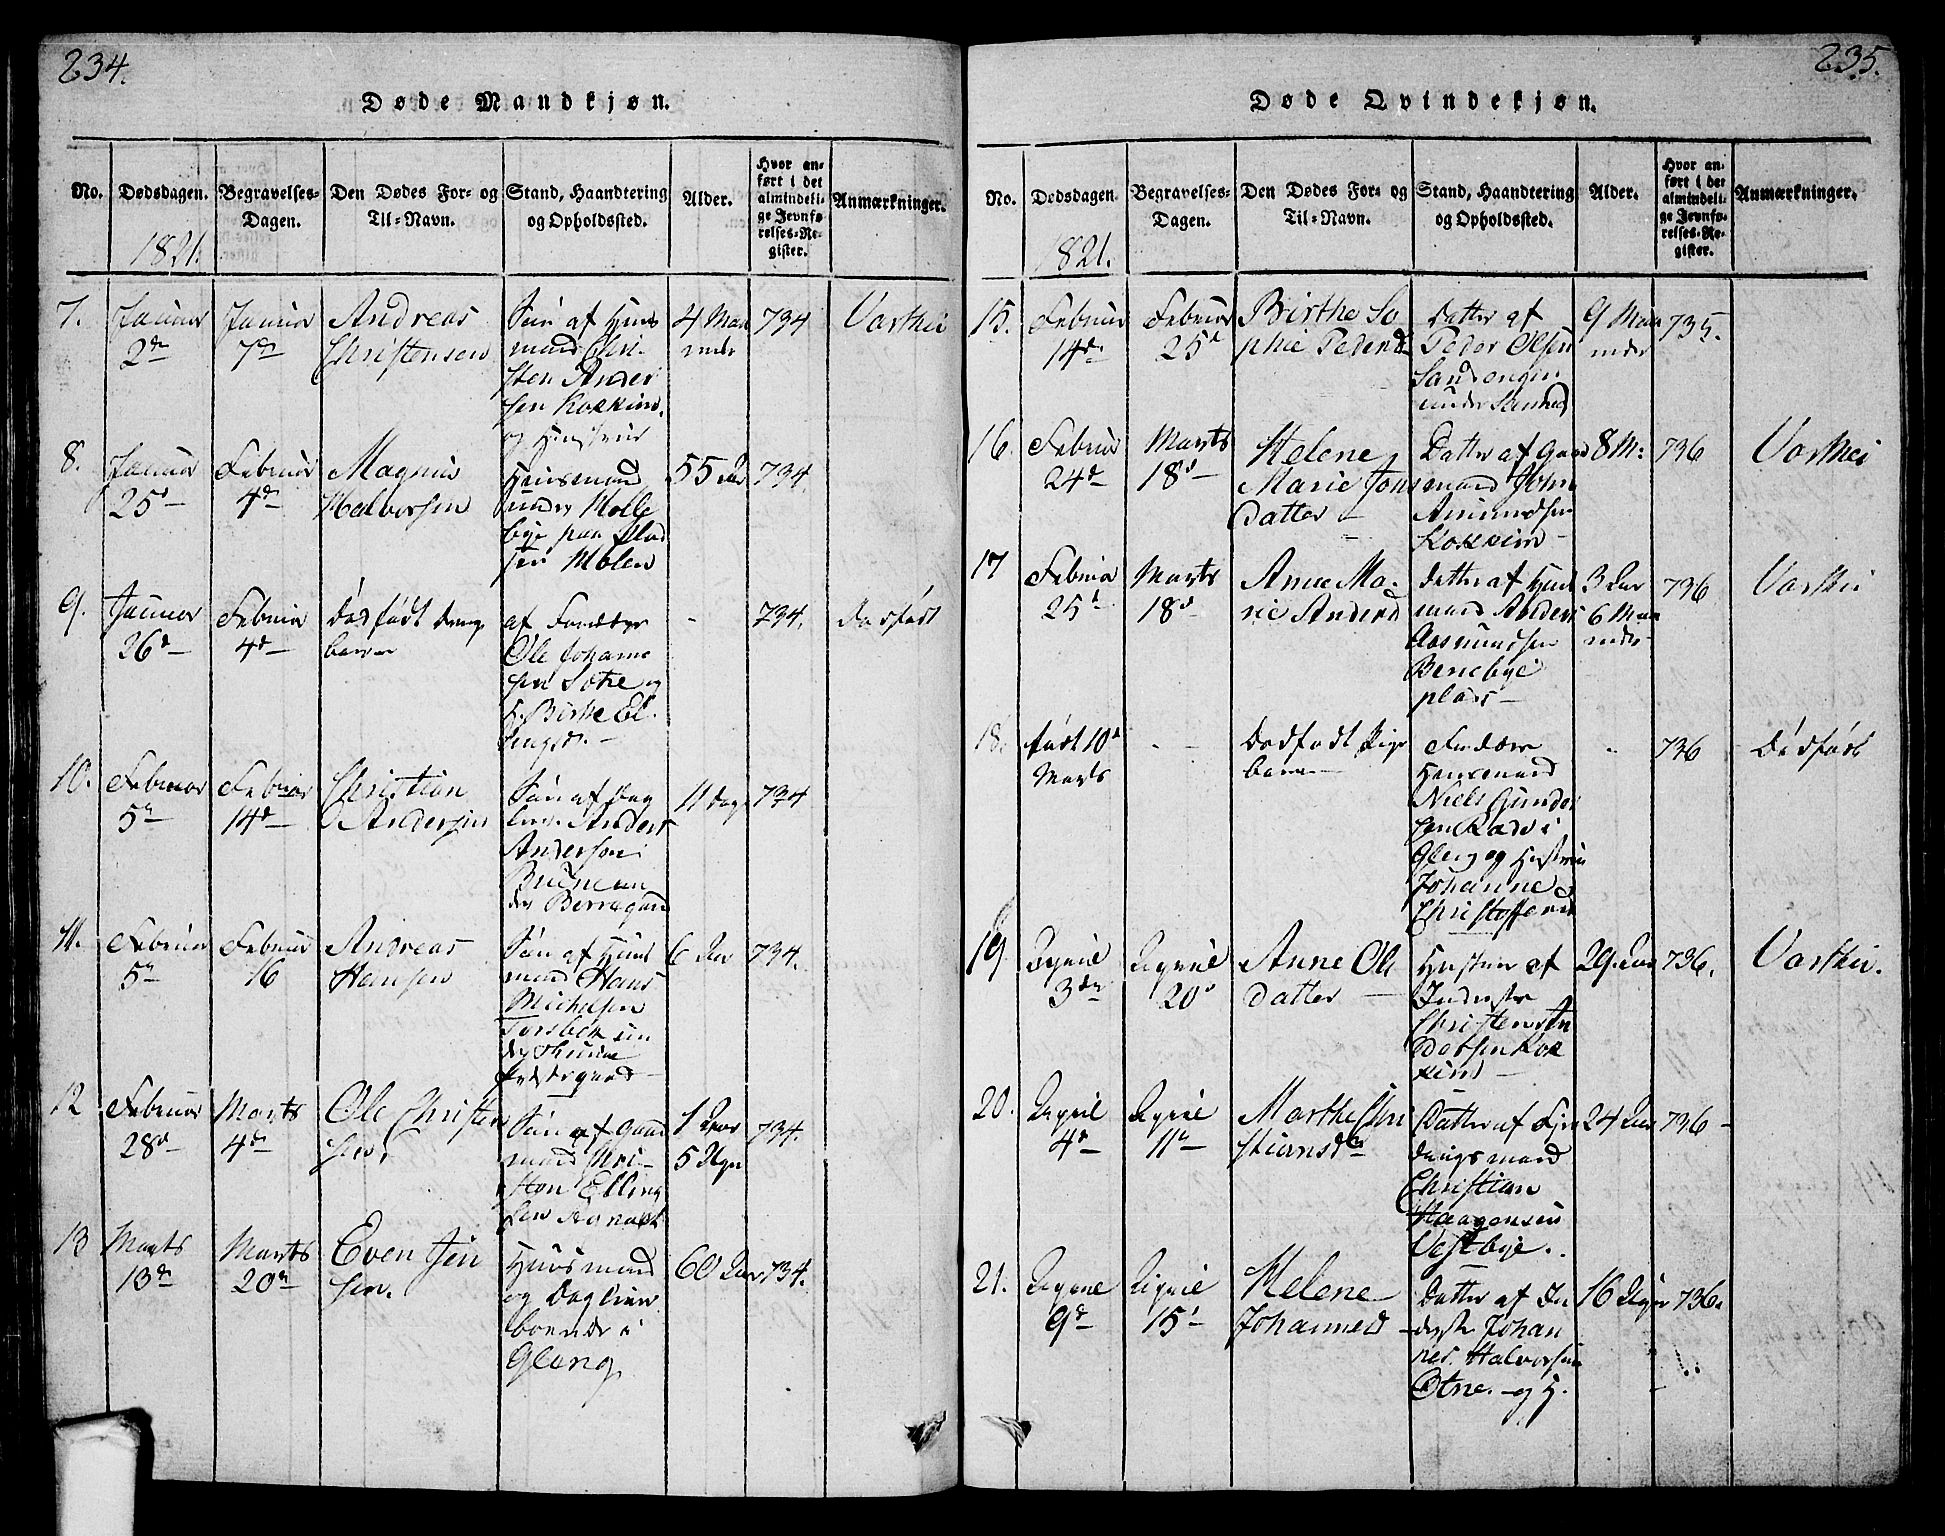 234.
Døde Mandkjøn.
No.
Dødsdagen.
Begravelses-
Dagen.
Den Dødes For- og
Til-Navn.
Stand, Haandtering
og Opholdssted.
Alder.
Hvor an-
ført i det
almindeli-
ge Jevnfø-
relses-Re-
gister.
Anmærkninger.
1821.
7.
Januar
2de
Januar
7de
Andreas
Christensen
Søn af Huus
mand Chri-
sten Ander
sen Kokkim
og Hustrue
4 Maa
neder
734
Varthei
8.
Januar
25d
Februar
4de
Magnus
Halvorsen
Huusmand
under Molle
bye paa Plad
sen Molen
55 Aar
734.
9.
Januar
26d
Februar
4de
Dødfødt drenge
barn
af
Ole Johanne
sen og
El-
lingsd.
-
734.
Dødfødt
10.
Februar
5te
Februar
14de
Christian
Andersen
Søn af Dag
Anders
Andersen
un
der Borregaard
11 Dage
734
11.
Februar
5te
Februar
16
Andreas
Hansen
Søn af Huus
mand Hans
Michelsen
Torsbek un
der Thune
Præstegaard
6 Aar
734.
12
Februar
28de
Marts
4de
Ole Christen
sen
Søn af Gaard
mand Chri-
sten Elling
sen
1 Aar
5 Uger
734.
13
Marts
13de
Marts
20de
Even Jen
sen.
Huusmand
og Daglein
boende i
Gleng
60 Aar
734.
235.
Døde Qvindekjøn.
No.
Dødsdagen.
Begravelses-
Dagen.
Den Dødes For- og
Til-Navn.
Stand, Haandtering
og Opholdssted.
Alder.
Hvor an-
ført i det
almindeli-
ge Jevnfø-
relses-Re-
gister.
Anmærkninger.
1821.
15.
Februar
14de
Februar
25d
Birthe So
phie Pedersd
Datter af
Peder Olsen
Sandengen
under Sannes
9 Maa
neder
735.
16.
Februar
24de
Marts
18d
Helene
Marie Jons
datter
Datter af Gaard
mand John
Amundsen
Kokkim
8 M:
736
Varthei
17
Februar
25d
Marts
18d
Anne Ma-
rie Andersd
Datter af Huus
mand Anders
Aasmundsen
Benebye
plads
3 Aar
6 Maa
neder
736
Varthei
18.
født 10d
Marts
-
Dødfødt Pige
barn
Forældre
Huusmand
Niels Gunder
sen i
Gleng og Hustrue
Johanne
Christoffersd
736
Dødfødt
19.
April
3de
April
20d
Anne Ole
datter
Hustrue af
Inderste
Christen An
dersen Kok
kim
29. Aar
736.
Varthei.
20.
April
4d
April
11te
Marthe Chri
stiansdtr
Datter af Fjer
dingsmand
Christian
Haagensen
Vestbye.
24 Aar
736
21.
April
9de
April
15d
Helene
Johannesd
Datter af In
derste Johan
nes Halvorsen
Otne. og H.
16 Uger
736